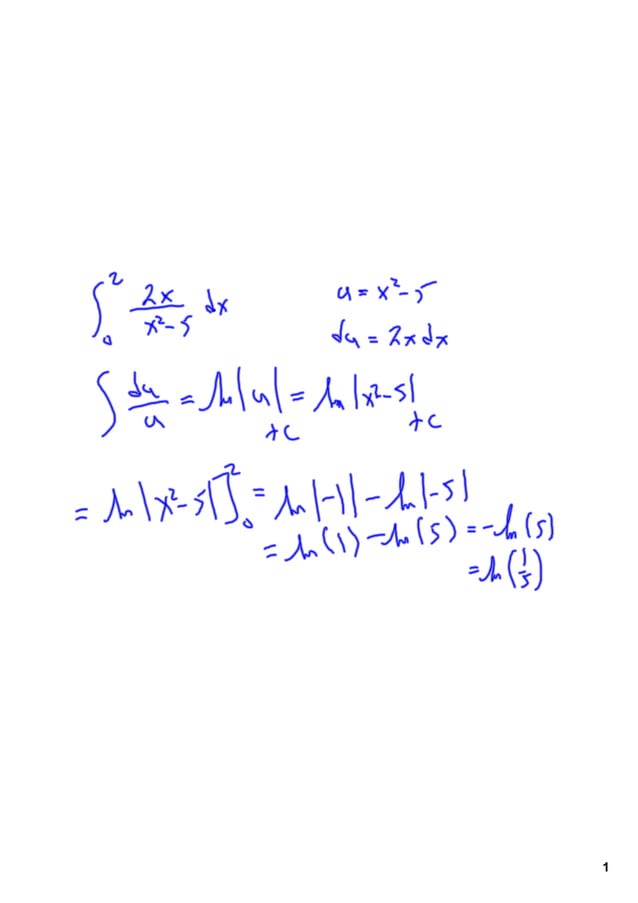 ∫₀² 2x/(x²-5) dx    u = x²-5
du = 2x dx
∫ du/u = ln|u| +C = ln|x²-5| +C
= ln|x²-5|]₀² = ln|-1| - ln|-5|
= ln(1) - ln(5) = -ln(5)
= ln(1/5)
1